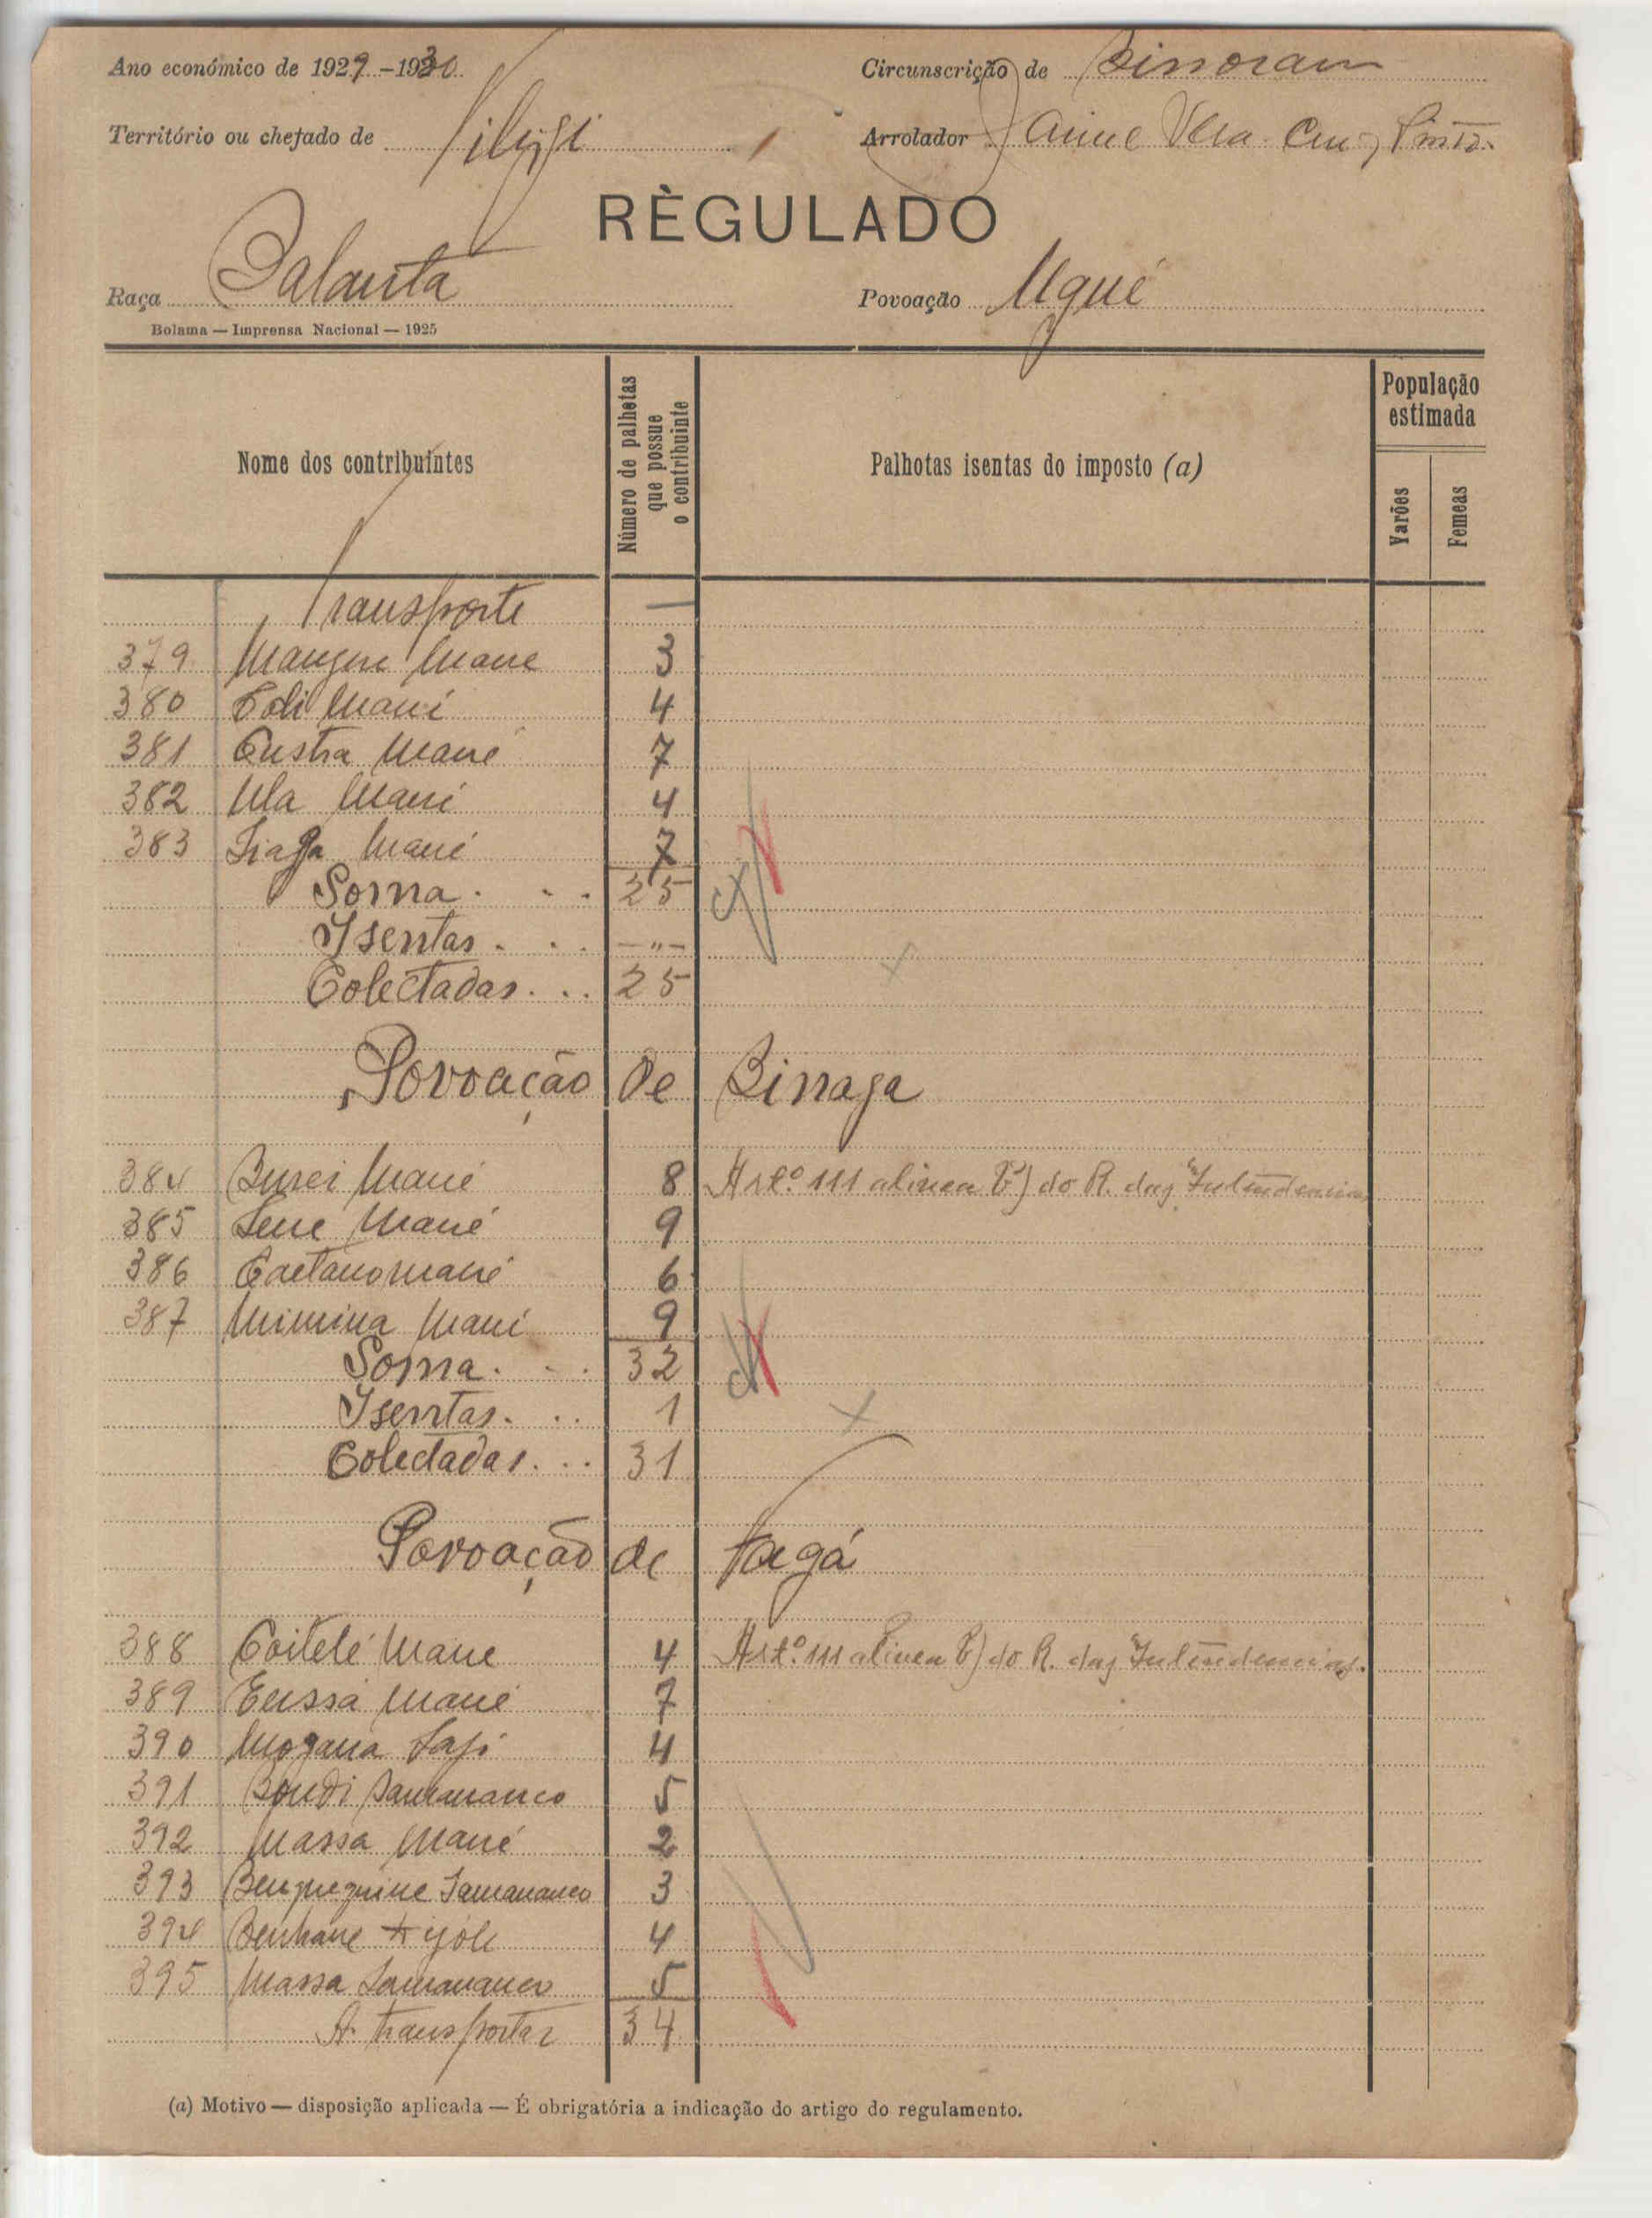 Ano económico de 1929-1930
Circunscrição de Bissoram
Território ou chefado de
Arrolador Jaime Vera Cruz Pinto
RÈGULADO
Raça Balanta
Povoação Uqué
Bolama — Imprensa Nacional — 1925
Nome dos contribuíntes
Número de palhetas que possue o contribuinte
Palhotas isentas do imposto (a)
População estimada
Varões
Femeas
Transporte —
379 Mané 3
380 Mané 4
381 Mané 7
382 Ula Mané 4
383 Mané 7
Soma . . . 25
Isentas . . . —"—
Colectadas . . . 25
Povoação de Binaga
384 Mané 8 Artº 111 alinea b) do R. das Intendencias
385 Mané 9
386 Caetano Mané 6
387 Mimina Mané 9
Soma . . . 32
Isentas . . . 1
Colectadas . . . 31
Povoação de Fagá
388 Coitelé Mané 4 Artº 111 alinea b) do R. das Intendencias.
389 Mané 7
390 4
391 Bondi Samananco 5
392 Massa Mané 2
393 Samananco 3
394 4
395 Massa Samananco 5
A transportar 34
(a) Motivo — disposição aplicada — É obrigatória a indicação do artigo do regulamento.